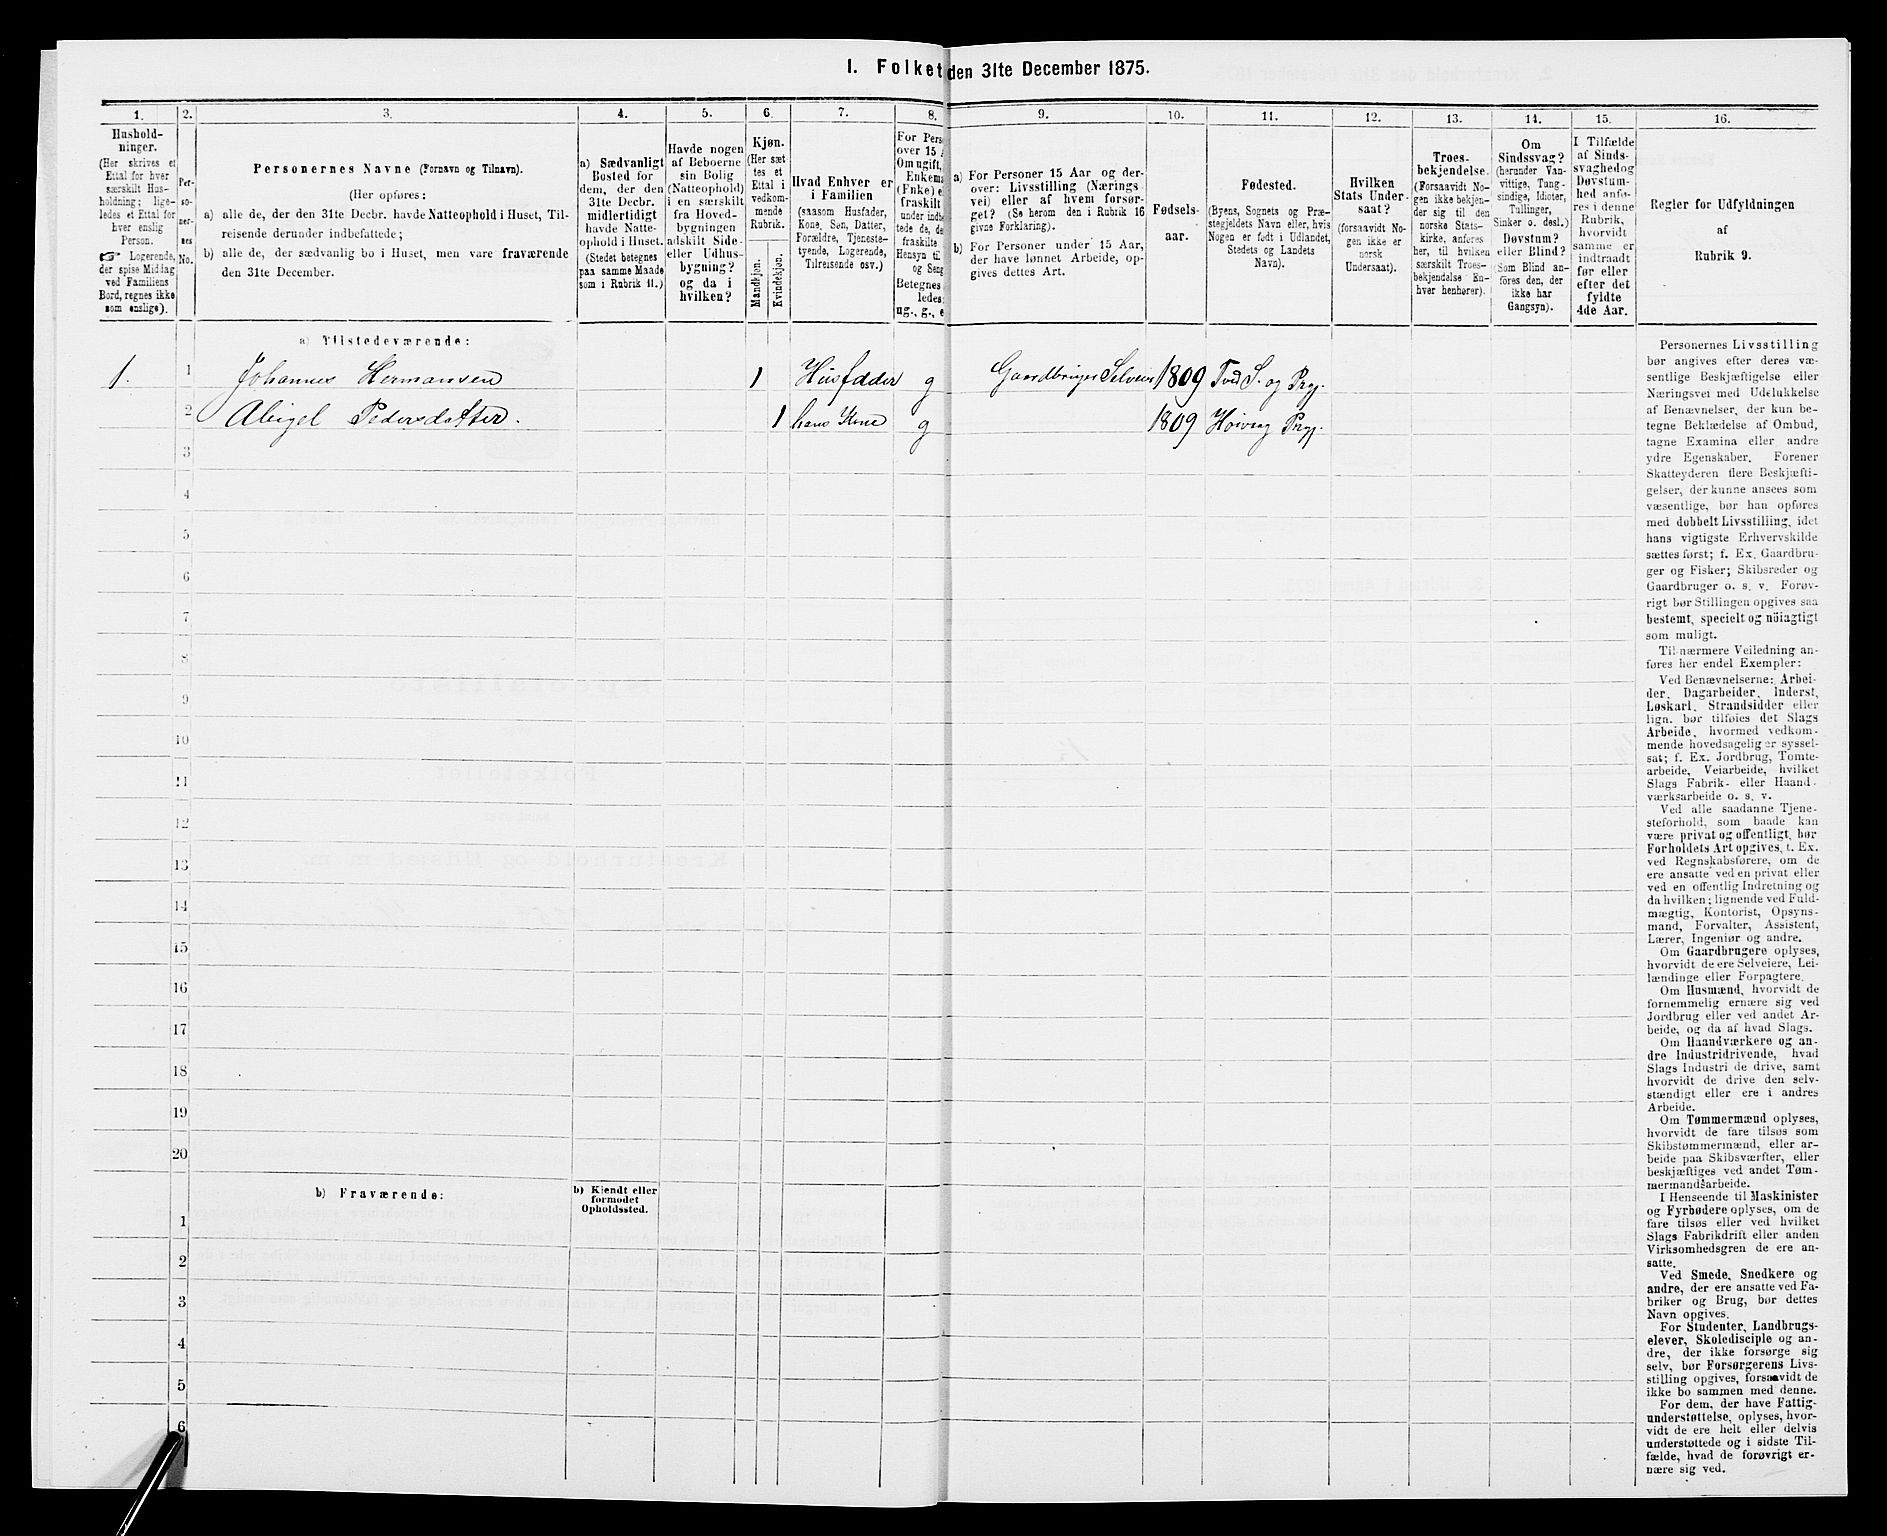 I. Folket den 31te December 1875.
1.
Hushold-
ninger.
(Her skrives et
Ettal for hver
særskilt Hus-
holdning; lige-
ledes et Ettal for
hver enslig
Person.
☞ Logerende,
der spise Middag
ved Familiens
Bord, regnes ikke
som enslige).
2.
Per-
so-
ner-
nes
No.
3.
Personernes Navne (Fornavn og Tilnavn).
(Her opføres:
a) alle de, der den 31te Decbr. havde Natteophold i Huset, Til-
reisende derunder indbefattede;
b) alle de, der sædvanlig bo i Huset, men vare fraværende
den 31te December.
4.
a) Sædvanligt
Bosted for
dem, der den
31te Decbr.
midlertidigt
havde Natte-
ophold i Huset.
(Stedet betegnes
paa samme Maade
som i Rubrik 11.)
5.
Havde nogen
af Beboerne
sin Bolig
(Natteophold)
i en særskilt
fra Hoved-
bygningen
adskilt Side-
eller Udhus-
bygning?
og da i
hvilken?
6.
Kjøn.
(Her sæt-
tes et
Ettal i
vedkom-
mende
Rubrik.
Mandkjøn.
Kvindekjøn.
7.
Hvad Enhver er
i Familien
(saasom Husfader,
Kone, Søn, Datter,
Forældre, Tjeneste-
tyende, Logerende,
Tilreisende osv.)
8.
For Pers
over 15 A
Om ugift,
Enkema
(Enke) e
fraskilt
under indbe
tede de, de
fraskilte
Hensyn til
og Seng
Betegnes
ledes:
ug., g., e
9.
a) For Personer 15 Aar og der-
over: Livsstilling (Nærings-
vei) eller af hvem forsør-
get? (Se herom den i Rubrik 16
givne Forklaring).
b) For Personer under 15 Aar,
der have lønnet Arbeide, op-
gives dettes Art.
10.
Fødsels-
aar.
11.
Fødested.
(Byens, Sognets og Præ-
stegjeldets Navn eller, hvis
Nogen er født i Udlandet,
Stedets og Landets
Navn).
12.
Hvilken
Stats Under-
saat?
(forsaavidt No-
gen ikke er
norsk
Undersaat).
13.
Troes-
bekjendelse.
(Forsaavidt No-
gen ikke bekjen-
der sig til den
norske Stats-
kirke, anføres
her, til hvilken
særskilt Troes-
bekjendelse En-
hver henhører).
14.
Om
Sindssvag?
(herunder Van-
vittige, Tung-
sindige, Idioter,
Tullinger,
Sinker o. desl.)
Døvstum?
eller Blind?
(Som Blind an-
føres den, der
ikke har
Gangsyn).
15.
I Tilfælde
af Sinds-
svaghed og
Døvstum-
hed anfø-
res i denne
Rubrik,
hvorvidt
samme er
indtraadt
før eller
efter det
fyldte
4de Aar.
16.
Regler for Udfyldningen
af
Rubrik 9.
a) Tilstedeværende:
1. 1 Johannes Hermansen 1 Husfader g Gaardbruger Selveier 1809 Tved S. og Prgj.
2 Abigel Pedersdatter. 1 hans Kone g 1809 Høivaag Prgj.
3
4
5
6
7
8
9
10
11
12
13
14
15
16
17
18
19
20
b) Fraværende:
b) Kjendt eller
formodet
Opholdssted.
1
2
3
4
5
6
Personernes Livsstilling
bør angives efter deres væ-
sentlige Beskjæftigelse eller
Næringsvei med Udelukkelse
af Benævnelser, der kun be-
tegne Beklædelse af Ombud,
tagne Examina eller andre
ydre Egenskaber. Forener
Skatteyderen flere Beskjæfti-
gelser, der kunne ansees som
væsentlige, bør han opføres
med dobbelt Livsstilling, idet
hans vigtigste Erhvervskilde
sættes først; f. Ex. Gaardbru-
ger og Fisker; Skibsreder og
Gaardbruger o. s. v. Forøv-
rigt bør Stillingen opgives saa
bestemt, specielt og nöiagtigt
som muligt.
Til nærmere Veiledning an-
føres her endel Exempler:
Ved Benævnelserne: Arbei-
der, Dagarbeider, Inderst,
Løskarl, Strandsidder eller
lign. bør tilføies det Slags
Arbeide, hvormed vedkom-
mende hovedsagelig er syssel-
sat; f. Ex. Jordbrug, Tomte-
arbeide, Veiarbeide, hvilket
Slags Fabrik- eller Haand-
værksarbeide o. s. v.
Ved alle saadanne Tjene-
steforhold, som baade kan
være privat og offentligt, bør
Forholdets Art opgives, f. Ex.
ved Regnskabsførere, om de
ere ansatte ved en privat eller
ved en offentlig Indretning og
da hvilken; lignende ved Fuld-
mægtig, Kontorist, Opsyns-
mand, Forvalter, Assistent,
Lærer, Ingeniør og andre.
Om Gaardbrugere oplyses,
hvorvidt de ere Selveiere, Lei-
lændinge eller Forpagtere.
Om Husmænd, hvorvidt de
fornemmelig ernære sig ved
Jordbrug eller ved andet Ar-
beide, og da af hvad Slags.
Om Haandværkere og an-
dre Industridrivende, hvad
Slags Industri de drive, samt
hvorvidt de drive den selv-
stændigt eller ere i andres
Arbeide.
Om Tømmermænd oplyses,
hvorvidt de fare tilsøs som
Skibstømmermænd, eller ar-
beide paa Skibsværfter, eller
beskjæftiges ved andet Tøm-
mermandsarbeide.
I Henseende til Maskinister
og Fyrbødere oplyses, om de
fare tilsøs eller ved hvilket
Slags Fabrikdrift eller anden
Virksomhedsgren de ere an-
satte.
Ved Smede, Snedkere og
andre, der ere ansatte ved Fa-
briker og Brug, bør dettes
Navn opgives.
For Studenter, Landbrugs-
elever, Skoledisciple og an-
dre, der ikke forsørge sig
selv, bør Forsørgerens Livs-
stilling opgives, forsaavidt de
ikke bo sammen med denne.
For dem, der have Fattig-
understøttelse, oplyses, hvor-
vidt de ere helt eller delvis
understøttede og i sidste Til-
fælde, hvad de forøvrigt er-
nære sig ved.